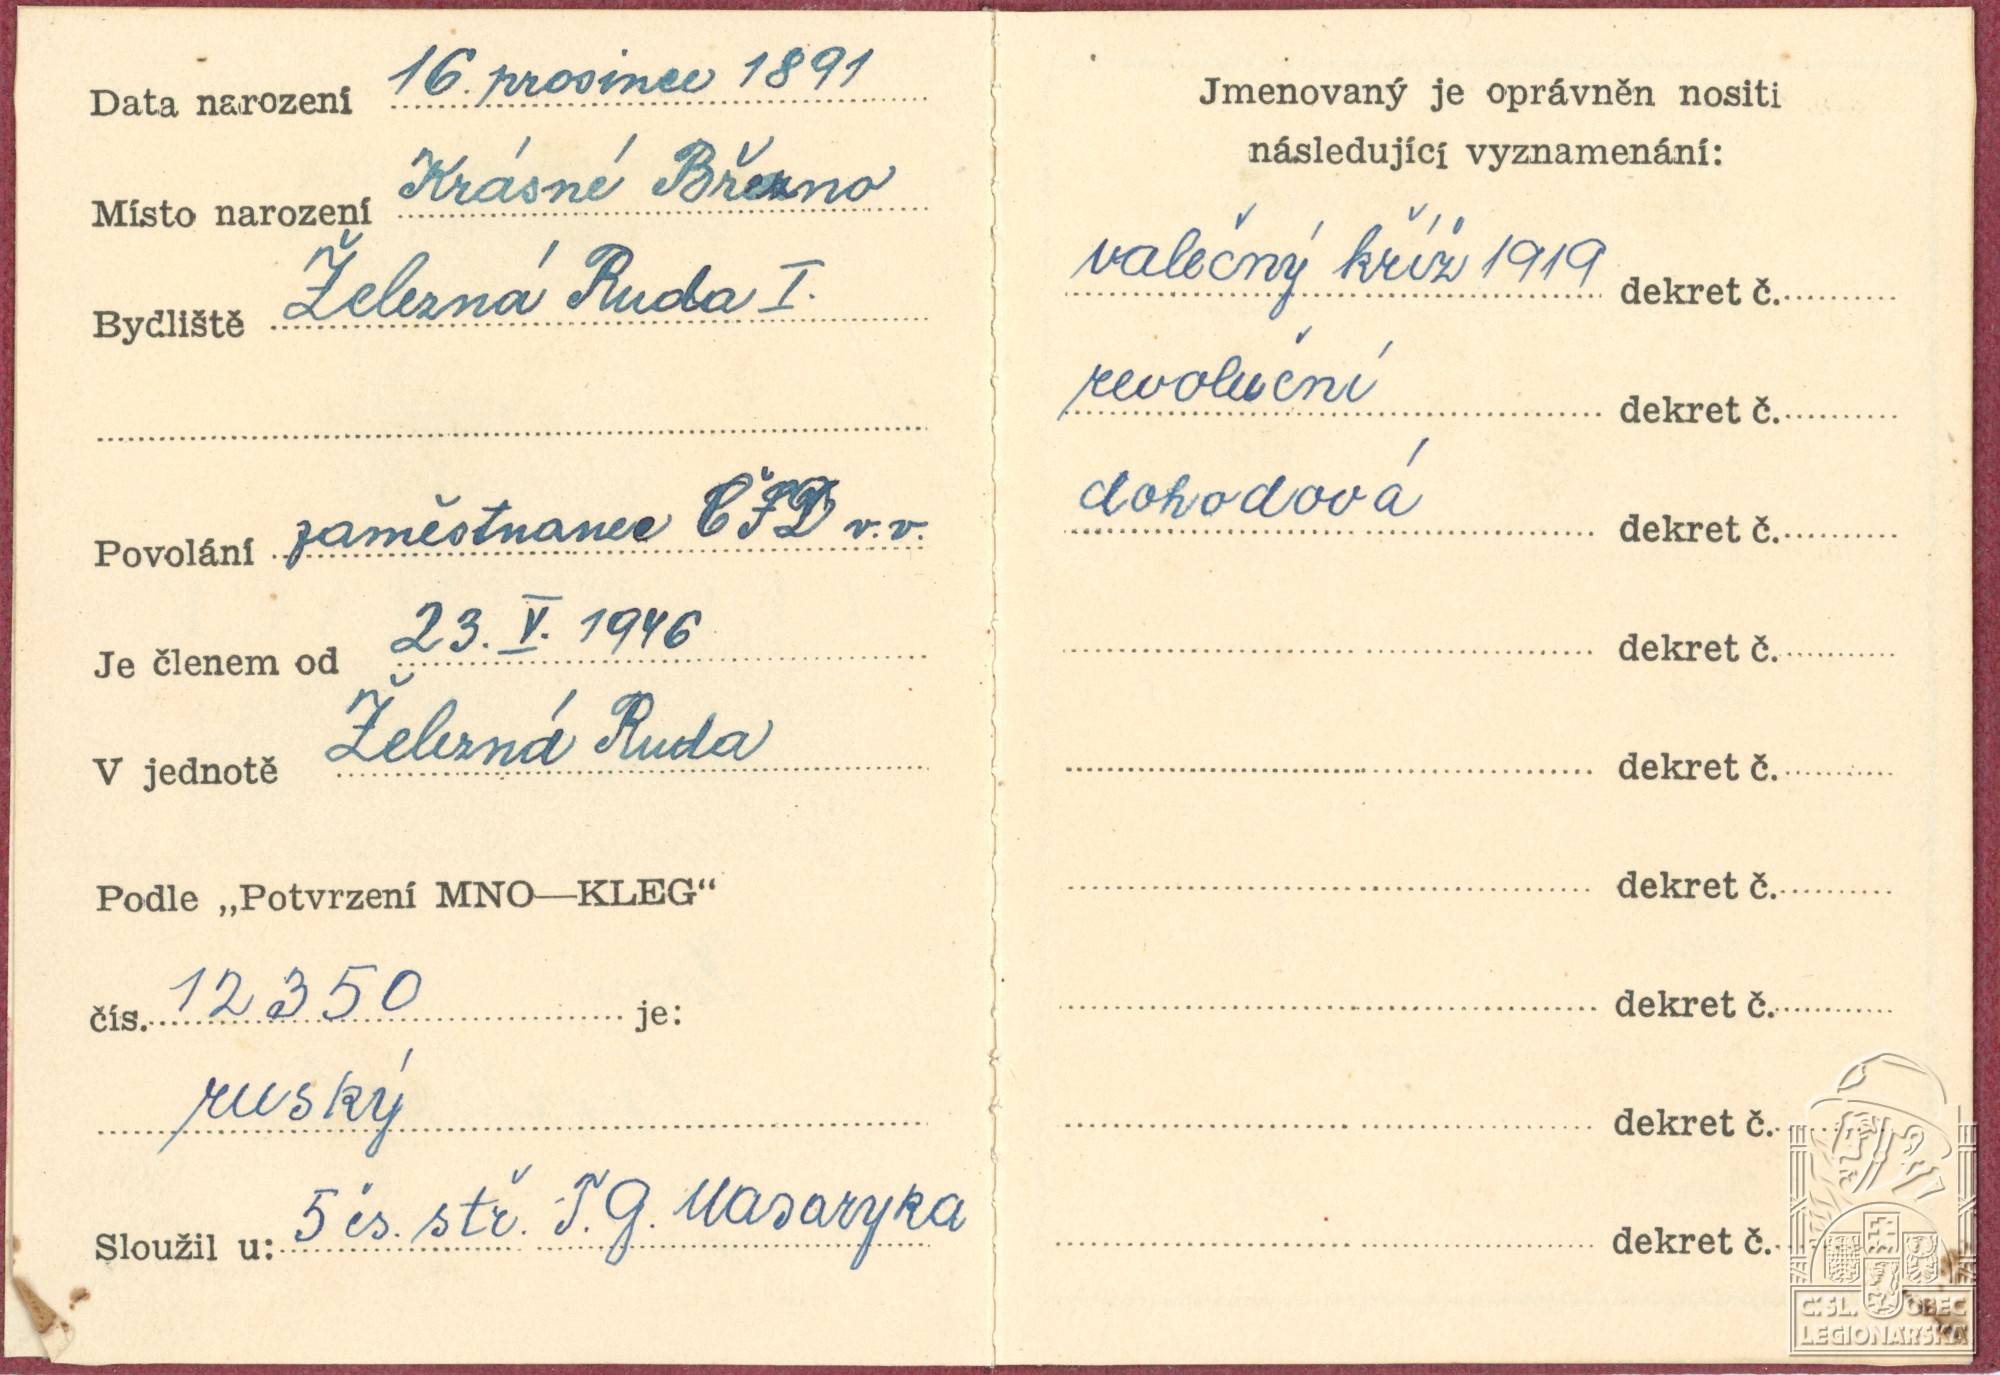 Data narození 16. prosince 1891
Místo narození Krásné Březno
Bydliště Železná Ruda I.
Povolání zaměstnanec ČSD v. v.
Je členem od 23. V. 1946
V jednotě Železná Ruda
Podle „Potvrzení MNO—KLEG“
čís. 12350 je:
ruský
Sloužil u: 5 čs. stř. T. G. Masaryka
Jmenovaný je oprávněn nositi
následující vyznamenání:
valečný kříž 1919 dekret č.
revoluční dekret č.
dohodová dekret č.
dekret č.
dekret č.
dekret č.
dekret č.
dekret č.
dekret č.
Č.SL. OBEC
LEGIONÁŘSKÁ